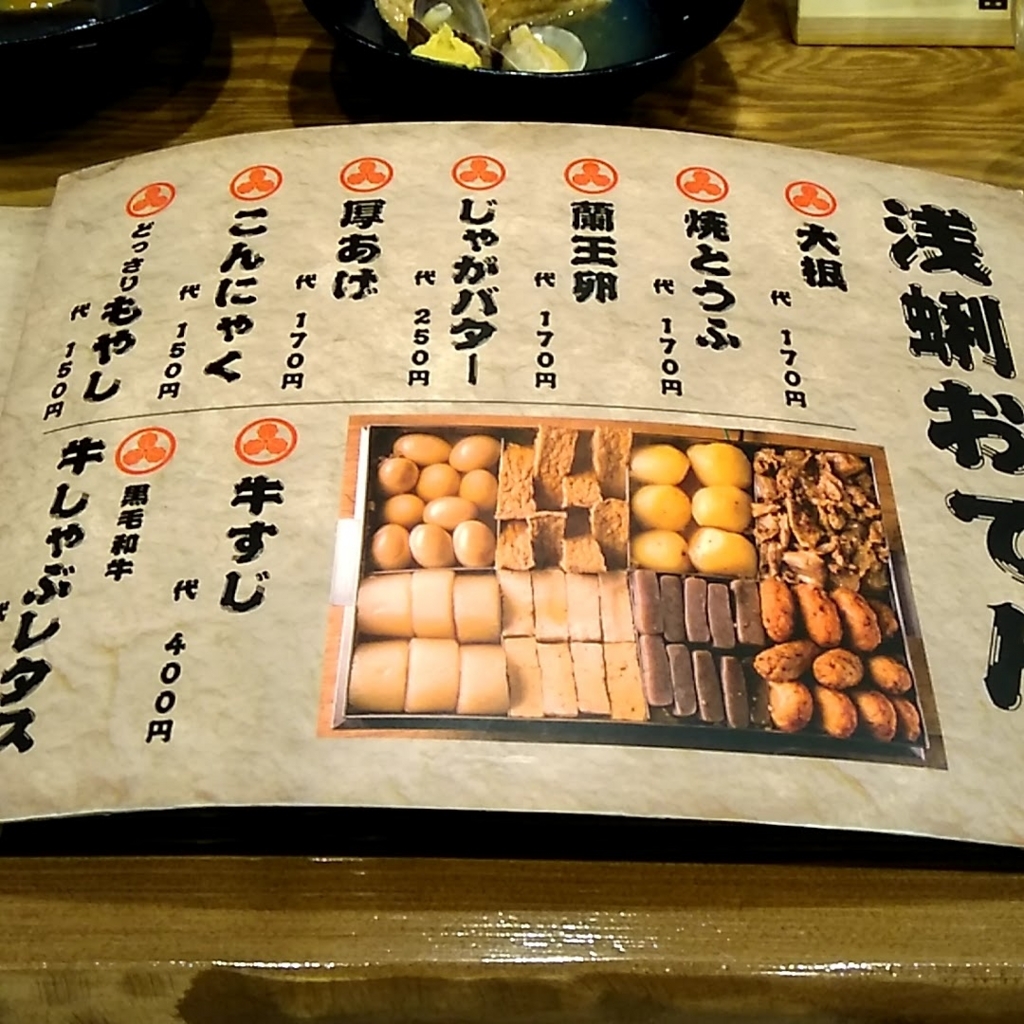 浅蜊おでん
大根
代 170円
焼とうふ
代 170円
蘭王卵
代 170円
じゃがバター
代 250円
厚あげ
代 170円
こんにゃく
代 150円
どっさりもやし
代 150円
牛すじ
代 400円
黒毛和牛
牛しゃぶレタス
代